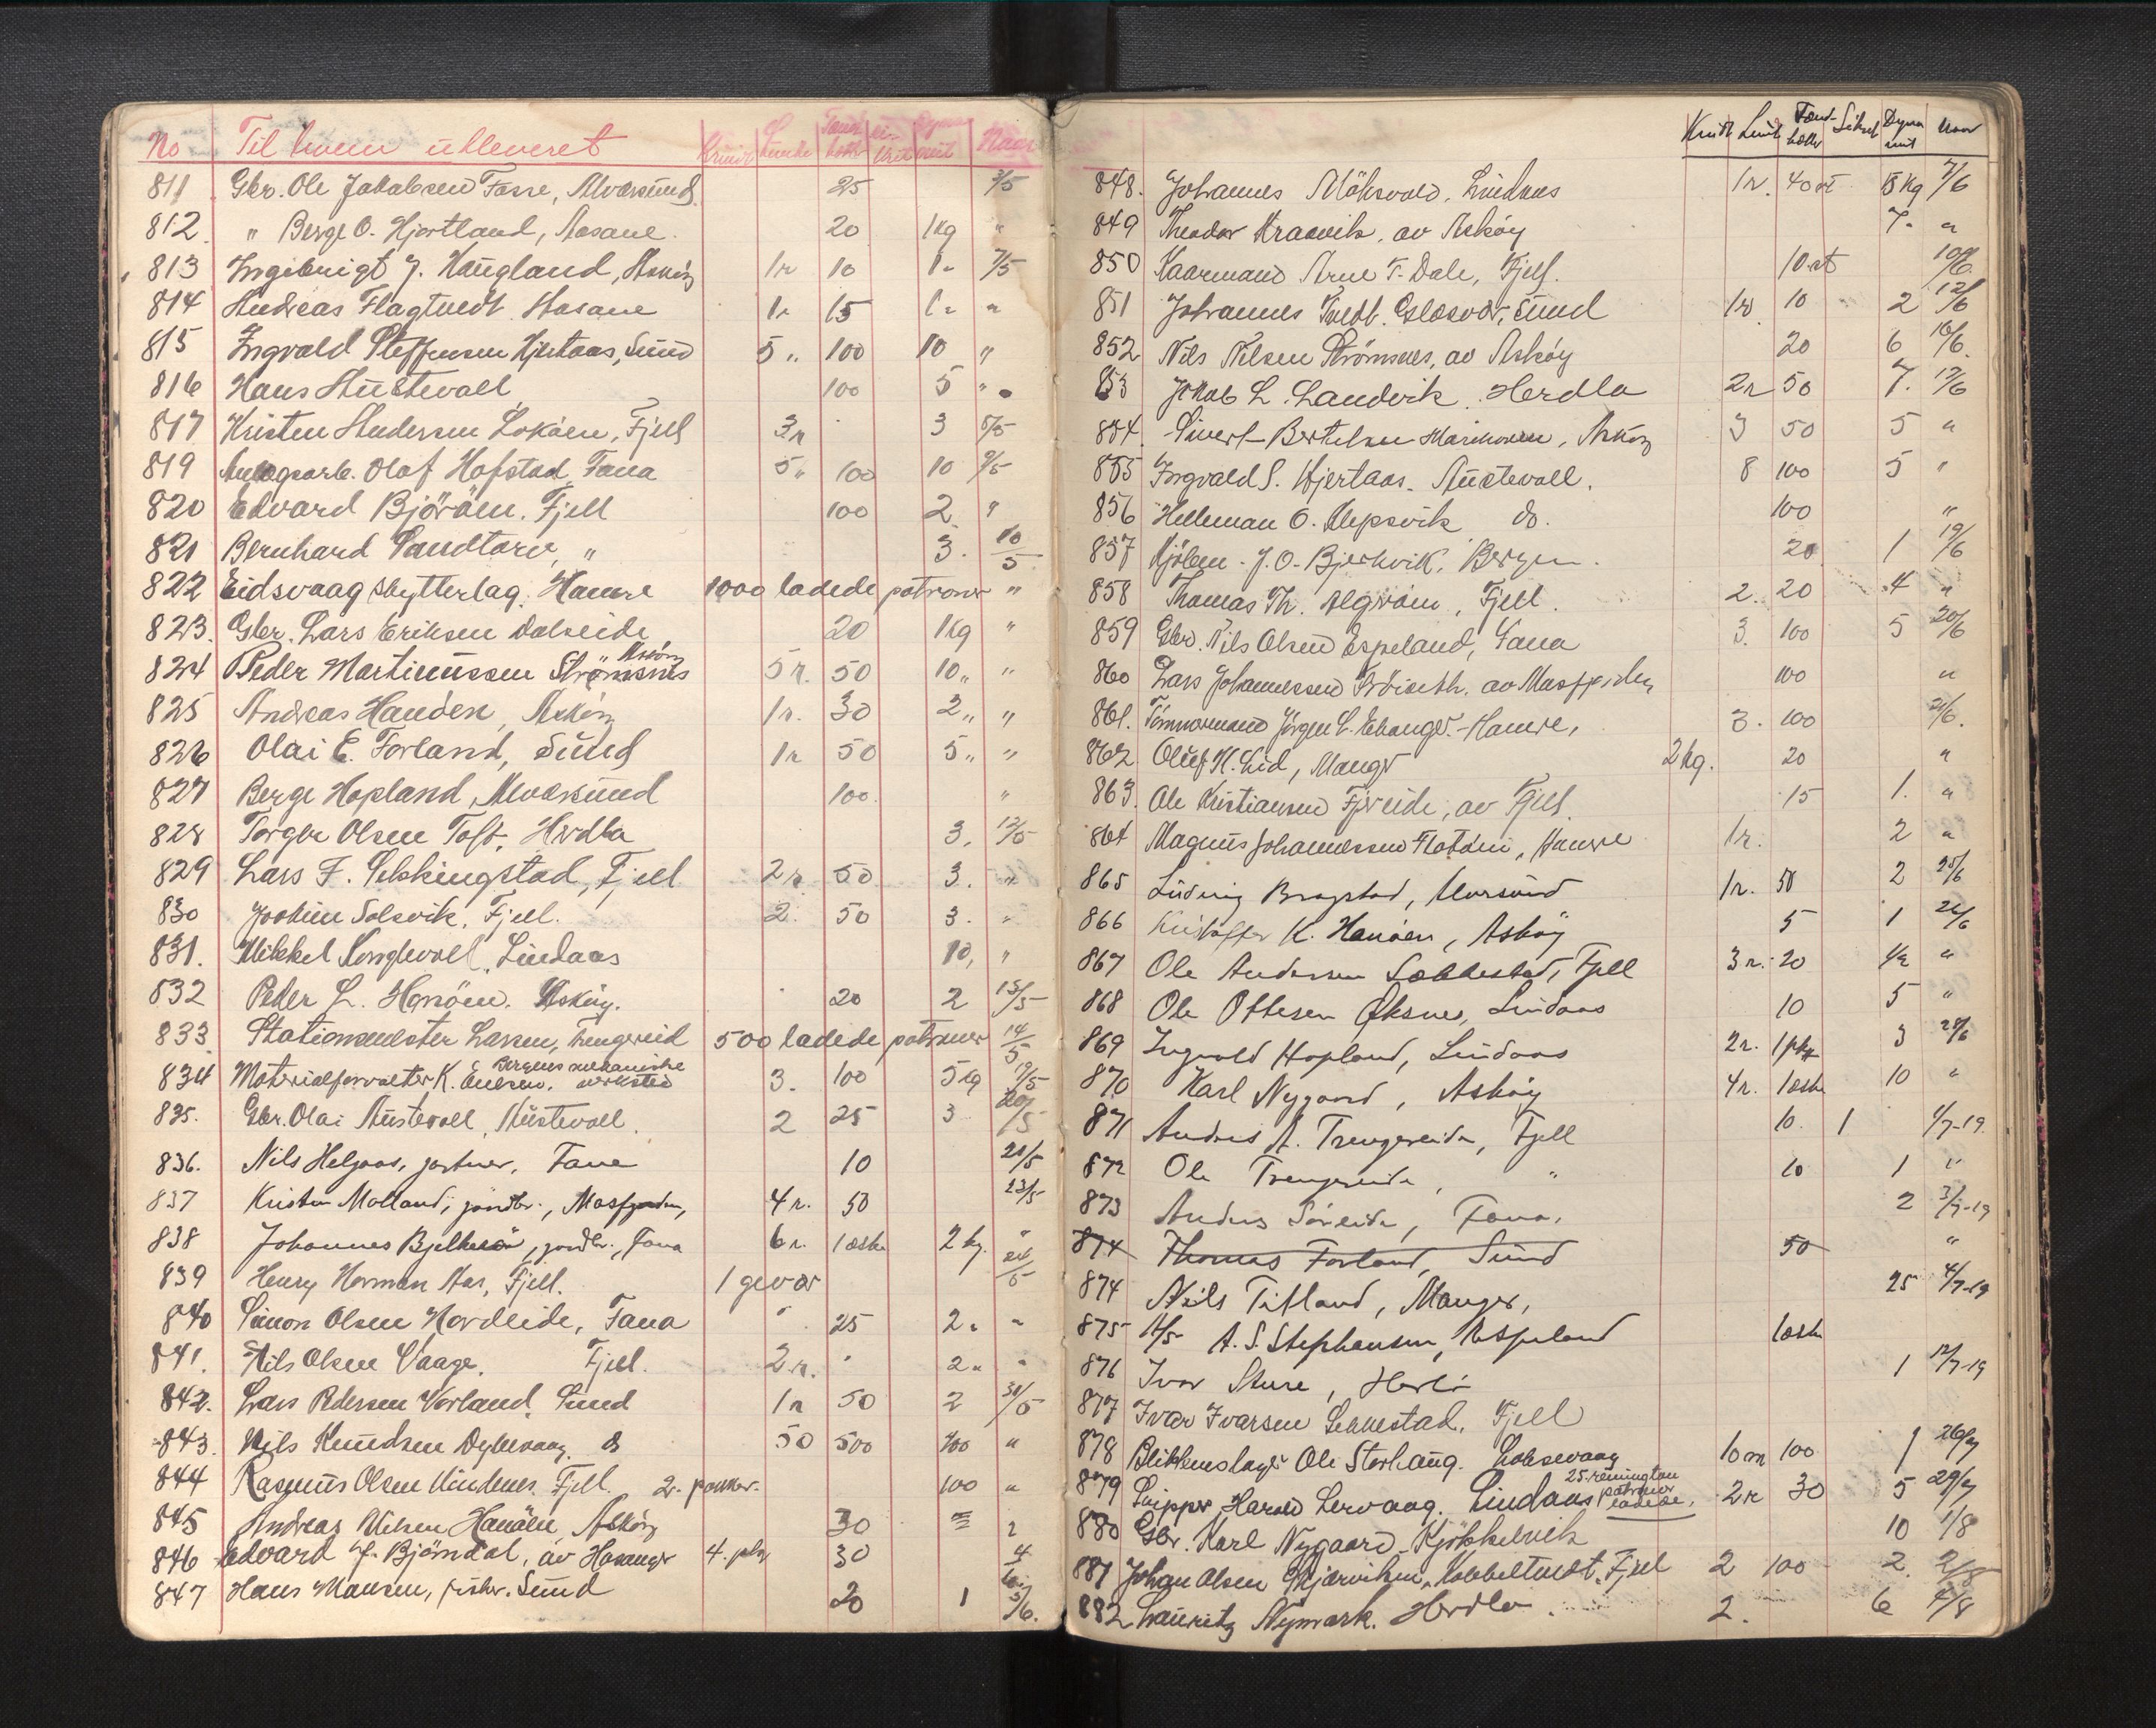 No Til hvem utleveret Krudt Lunte Tændhætt Dyna mit Naar
811 Gbr. Ole Jakobsen Fosse, Alværsund 25 3/5
812. " Berge O. Hjortland, Aasane. 20 1kg "
813 Ingebrigt J. Haugland, Askøy 1r 10 1" 7/5
814 Andreas Flagtvedt Aasane 1" 15 1" "
815 Ingvald Steffensen Hjertaas, Sund 5" 100 10 "
816 Hans Austevoll 100 5 "
817 Kristen Andersen Lokøen, Fjell 3r 3 8/5
819 Anlægsarb. Olaf Hofstad, Fana 5" 100 10 9/5
820 Edvard Bjørøen. Fjell 100 2 "
821 Bernhard Sandtorv, " 3. 10/5
822 Eidsvaag skytterlag. Hamre 1000 ladede patroner "
823. Gbr. Lars Eriksen Dalseide 20 1kg "
824 Peder Martinussen Strømsnes Askøy 5r. 50 10" "
825 Andreas Hanøen, Askøy 1r. 30 2" "
826 Olai E. Forland, Sund 1r 50 5" "
827 Berge Hopland, Alværsund 100. "
828 Torger Olsen Toft, Herdla 3. 12/5
829 Lars F. Sekkingstad, Fjell 2r. 50 3. "
830 Joakim Solsvik, Fjell. 2. 50 3. "
831. Mikkel Kongevoll, Lindaas 10, "
832 Peder L. Hanøen. Askøy. 20 2 13/5
833 Stationsmester Larsen, Trengereid 500 ladede patroner 14/5
834 Materialforvalter K. Bergens mekaniske verksted 3. 100 5kg 19/5
835. Gbr. Olai Austevoll, Austevoll. 2 25 3 20/5
836. Nils Helgaas, gartner, Fane 10 21/5
837 Kristen Molland, gaardbr., Masfjorden, 4r. 50 23/5
838 Johannes Bjelkerø, gaardbr., Fana 6r. 1 æske 2 kg. "
839 Henry Norman Aas, Fjell. 1 gevær 24/5
840 Simon Olsen Hordleide, Fana 25 2" "
841. Nils Olsen Vaage. Fjell. 2r. 2" "
842. Lars Pedersen Vorland, Sund 1r 50 2 30/5
843. Nils Knudsen Dyblevaag, do 50 500 400 "
844 Rasmus Olsen Vindenes Fjell. 2. pakker. 100 "
845 Andreas Nilsen Hanøen, Askøy 30 "
846 Edvard J. Bjørndal, av Hosanger 4. pk 30 4/6
847 Hans Monsen, fisker. Sund 20 1 5/6.
Krudt Lunte Tændhætter Sikret Dyna mit Naar
848. Johannes Mjøksvold, Lindaas 1r. 40 st. 15 kg 7/6
849 Theodor Kraavik, av Askøy 7. "
850 Kaarmand Arne T. Dale, Fjell. 10 st 10/6
851 Johannes Tvedt. Golæsvær, Sund 1r 10 2 12/6
852 Nils Nilsen Strømsnes, av Askøy 20 6 16/6.
853 Jakob L. Landvik. Herdla 2r 50 7. 17/6
854. Sivert Bertelsen Marikoven, Askøy 3 50 5 "
855 Ingvald S. Hjertaas. Austevoll. 8 100 5 "
856 Helleman O. Klepsvik do. 100 "
857 Kjøbm. J. O. Bjerkvik, Bergen. 20 1 19/6
858 Thomas Th. Algrøen, Fjell. 2. 20 4 "
859 Gbr. Nils Olsen Espeland, Fana 3. 100 5 20/6
860 Lars Johannessen av Masfjorden 100 "
861. Tømmermand Jørgen L. Ekanger. Hamre, 3. 100 21/6.
862 Oluf K. Eid, Manger 2kg. 20 "
863. Ole Kristiansen Fjæreide, av Fjell. 15 1. "
864 Magnus Johannessen Flatøen, Hamre 1r. 2 "
865 Ludvig Bragstad, Alversund 1r. 50 2 25/6
866 Kristoffer K. Hanøen, Askøy 5 1 26/6
867 Ole Andersen Sækkestad, Fjell 3r. 20 1/2 "
868 Ole Ottesen Øksnes, Lindaas 10 5 "
869 Ingvald Hopland, Lindaas 2r. 1 pk 3 28/6
870 Karl Nygaard, Askøy 4r. 1 æske 10 "
871 Anders A. Trengereide, Fjell 10. 1 1/7-19.
872 Ole Trengereide, " 10 1 "
873 Anders Søreide, Fana. 2 3/7-19
874 Thomas Forland, Sund 50 "
874 Nils Titland, Manger, 25 4/7-19
875 A/S A. S. Stephansen, Espeland 1 æske
876 Ivar Sture, Herla 1 12/7-19
877 Ivar Ivarsen Sekkestad. Fjell
878 Blikkenslager Ole Storhaug. Laksevaag 10 m 100 1 26/7
879 Skipper Harald Lervaag. Lindaas 25 remington patroner ladede, 2r 30 5 29/7
880 Gbr. Karl Nygaard Kjøkkelvik 10 1/8
881 Johan Olsen Skjærviken, Kobbeltvedt. Fjell 2 100 2. 2/8
882 Lauritz Nymark. Herdla 2. 6 4/8